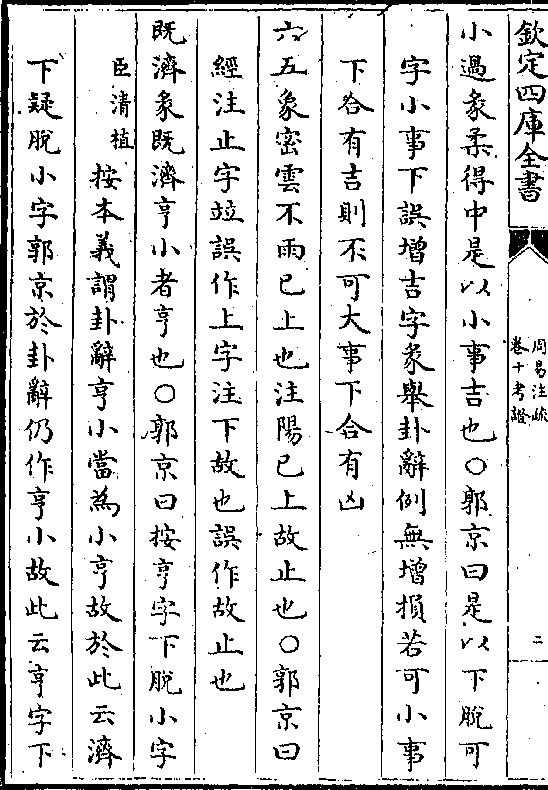 欽定四庫全書
周易注疏
卷十考證
二
小過彖柔得中是以小事吉也○郭京曰是以下脫可
字小事下誤增吉字彖舉卦辭例無增損若可小事
下合有吉則不可大事下合有凶
六五象密雲不雨已上也注陽已上故止也○郭京曰
經注止字竝誤作上字注下故也誤作故止也
既濟彖既濟亨小者亨也○郭京曰按亨字下脫小字
臣清植按本義謂卦辭亨小當為小亨故於此云濟
下疑脫小字郭京於卦辭仍作亨小故此云亨字下